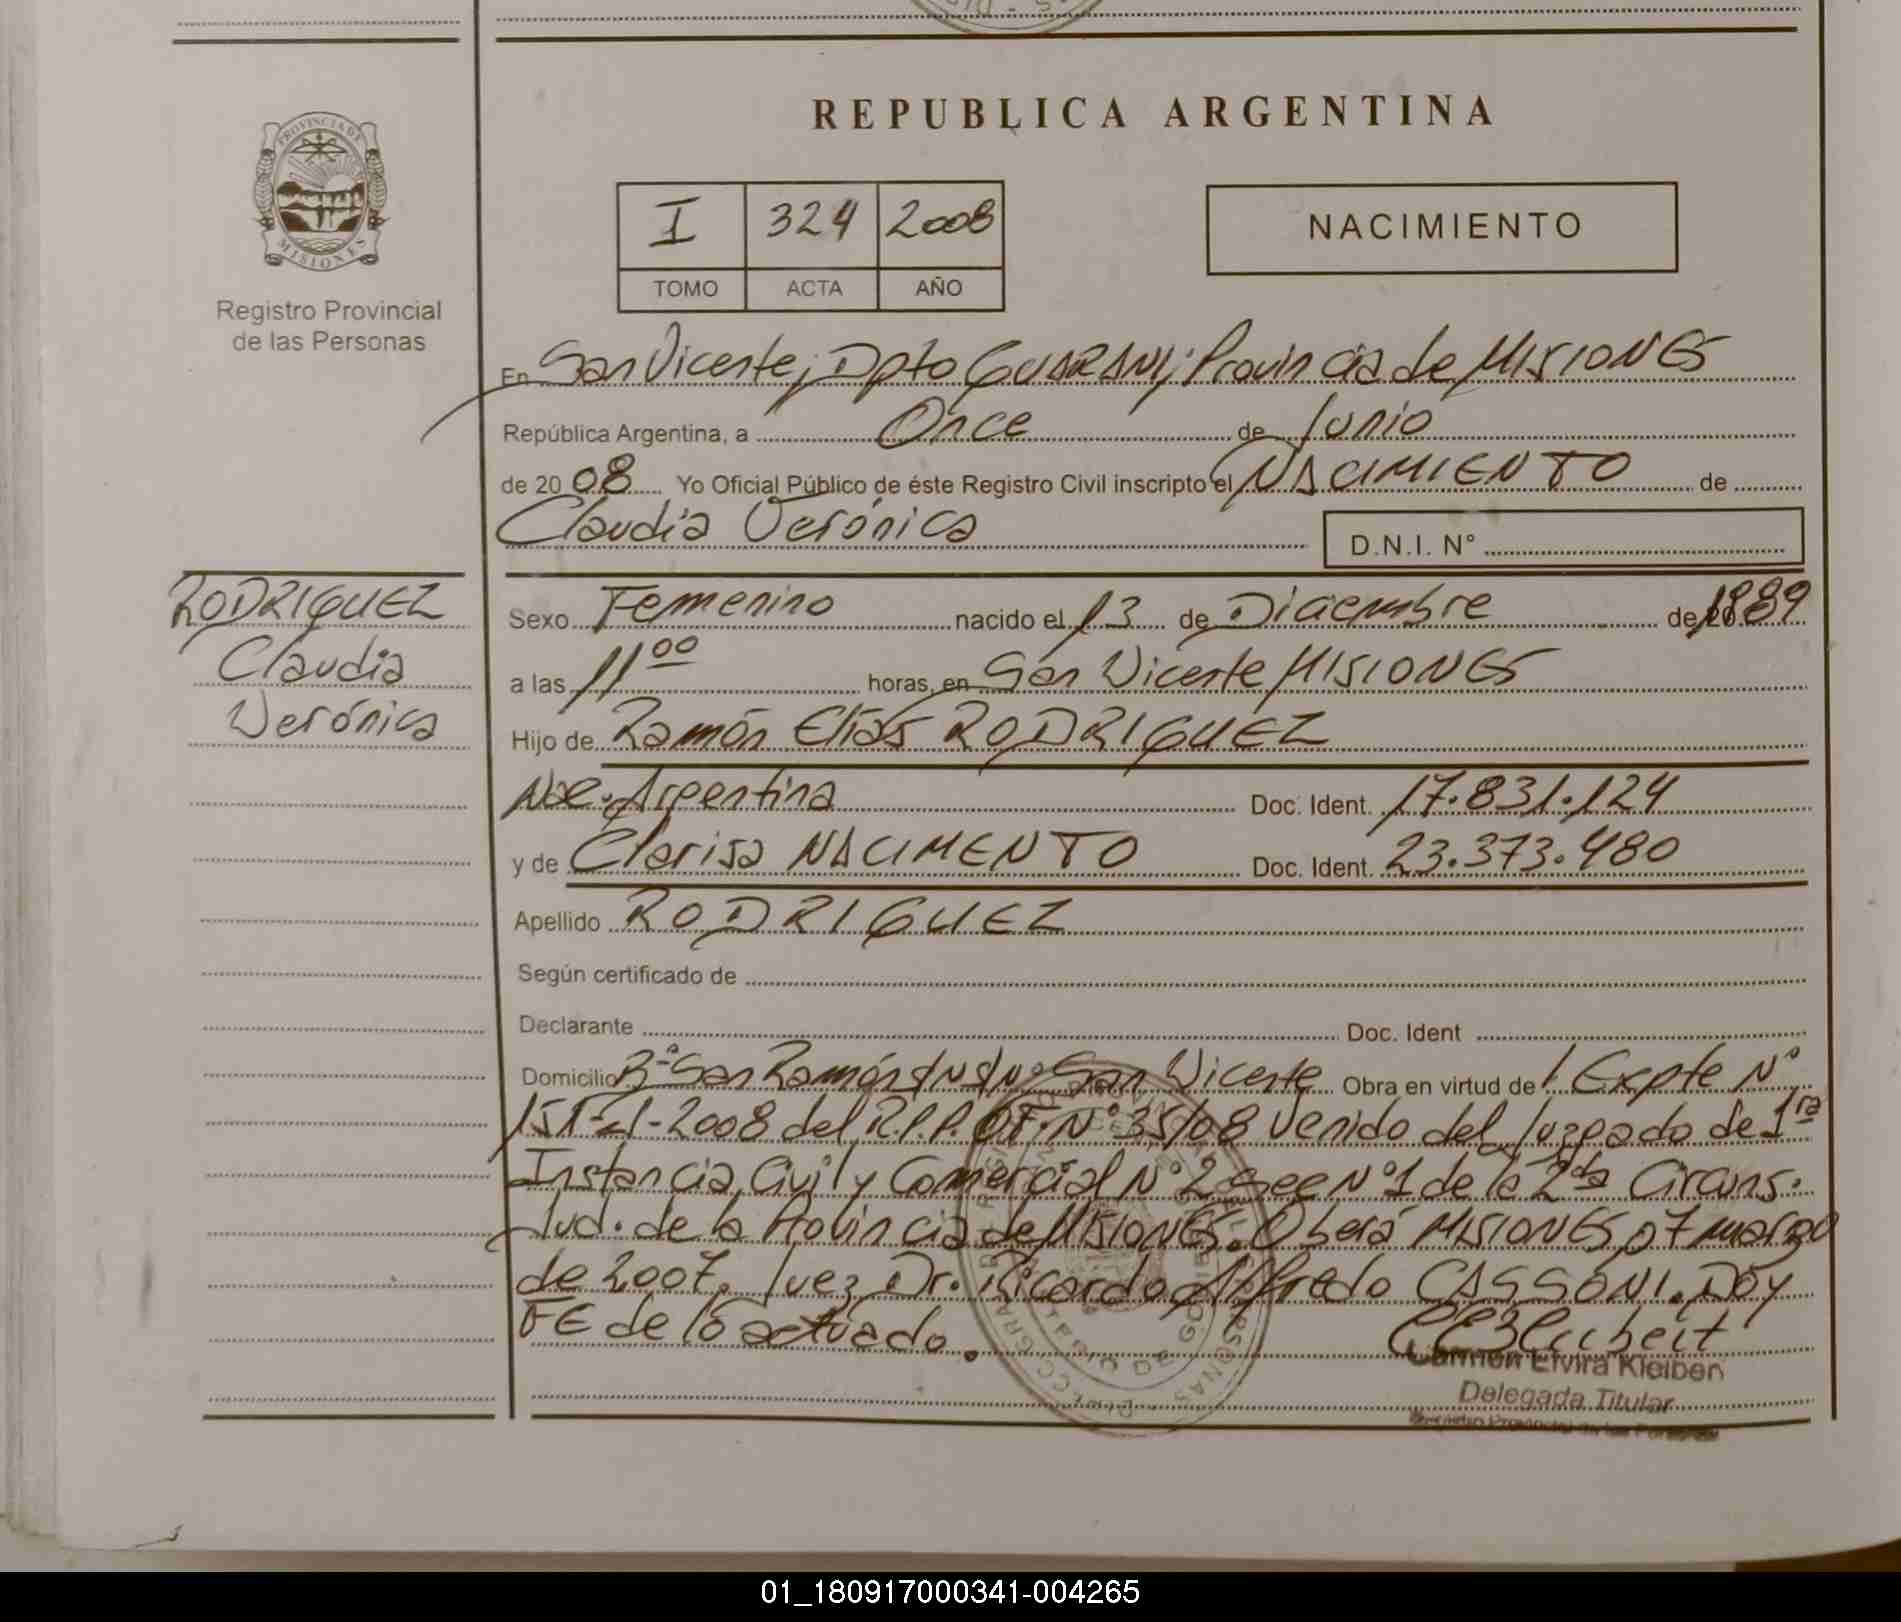 REPUBLICA ARGENTINA
PROVINCIA DE
MISIONES
Registro Provincial
de las Personas
I 324 2008
TOMO ACTA AÑO
NACIMIENTO
En San Vicente, Dpto GUARANI; Provincia de MISIONES
República Argentina, a Once de Junio
de 2008 Yo Oficial Público de éste Registro Civil inscripto el NACIMIENTO de
Claudia Verónica
D.N.I. N°
RODRIGUEZ
Claudia
Verónica
Sexo Femenino nacido el 13 de Diciembre de 1989
a las 11 00 horas, en San Vicente MISIONES
Hijo de Ramón Elías RODRIGUEZ
Nac. Argentina Doc. Ident. 17.831.124
y de Clarisa NACIMENTO Doc. Ident. 23.373.480
Apellido RODRIGUEZ
Según certificado de
Declarante Doc. Ident
Domicilio B° San Ramón S/N San Vicente Obra en virtud de Expte N°
2008 del R.P.P. OF. N° 35/08 Venido del Juzgado de 1ra
Instancia Civil y Comercial N° 2 Sec N° 1 de la 2da Circuns.
Jud. de la Provincia de MISIONES. Oberá MISIONES 07 marzo
de 2007. Juez Dr. Ricardo Alfredo CASSONI. DOY
FE de lo actuado.
Carmen Elvira Kleiben
Delegada Titular
Registro Provincial de las Personas
01_180917000341-004265